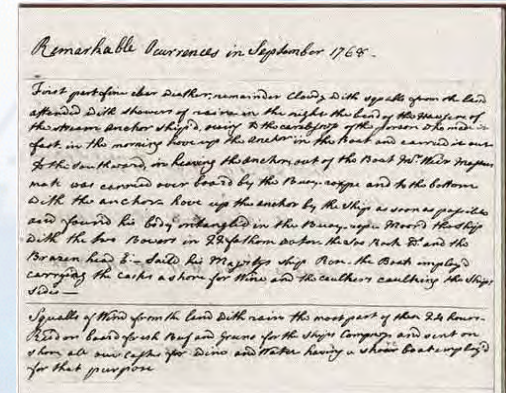 Remarkable Ocurrences in September 1768.
First part fine clear Weather remainder Cloudy with squalls from the land
attended with showers of rain in the night the bend of the Hawser of
the stream Anchor slip'd owing to the carelessness of the person who made it
fast in the morning hove up the Anchor in the Boat and carried it out
to the Southward, in heaving the Anchor out of the Boat Mr Weir Masters
mate was carried over board by the Buoy-rope and to the bottom
with the anchor. hove up the anchor by the Ship as soon as possible
and found his body intangled in the Buoy-rope Moor'd the ship
with the two Bowers in 22 fathom water the Loo Rock W and the
Brazen head E- Saild his Majestys ship Rose. the Boats employ'd
carrying the casks a shore for Wine and the caulkers caulking the Ships
sides
Squalls of Wind from the land with rain the most part of these 24 hours.
Rec'd on board fresh Beef and Greens for the Ships Company and sent on
shore all our casks for Wine and Water having a shore boat employ'd
for that purpose